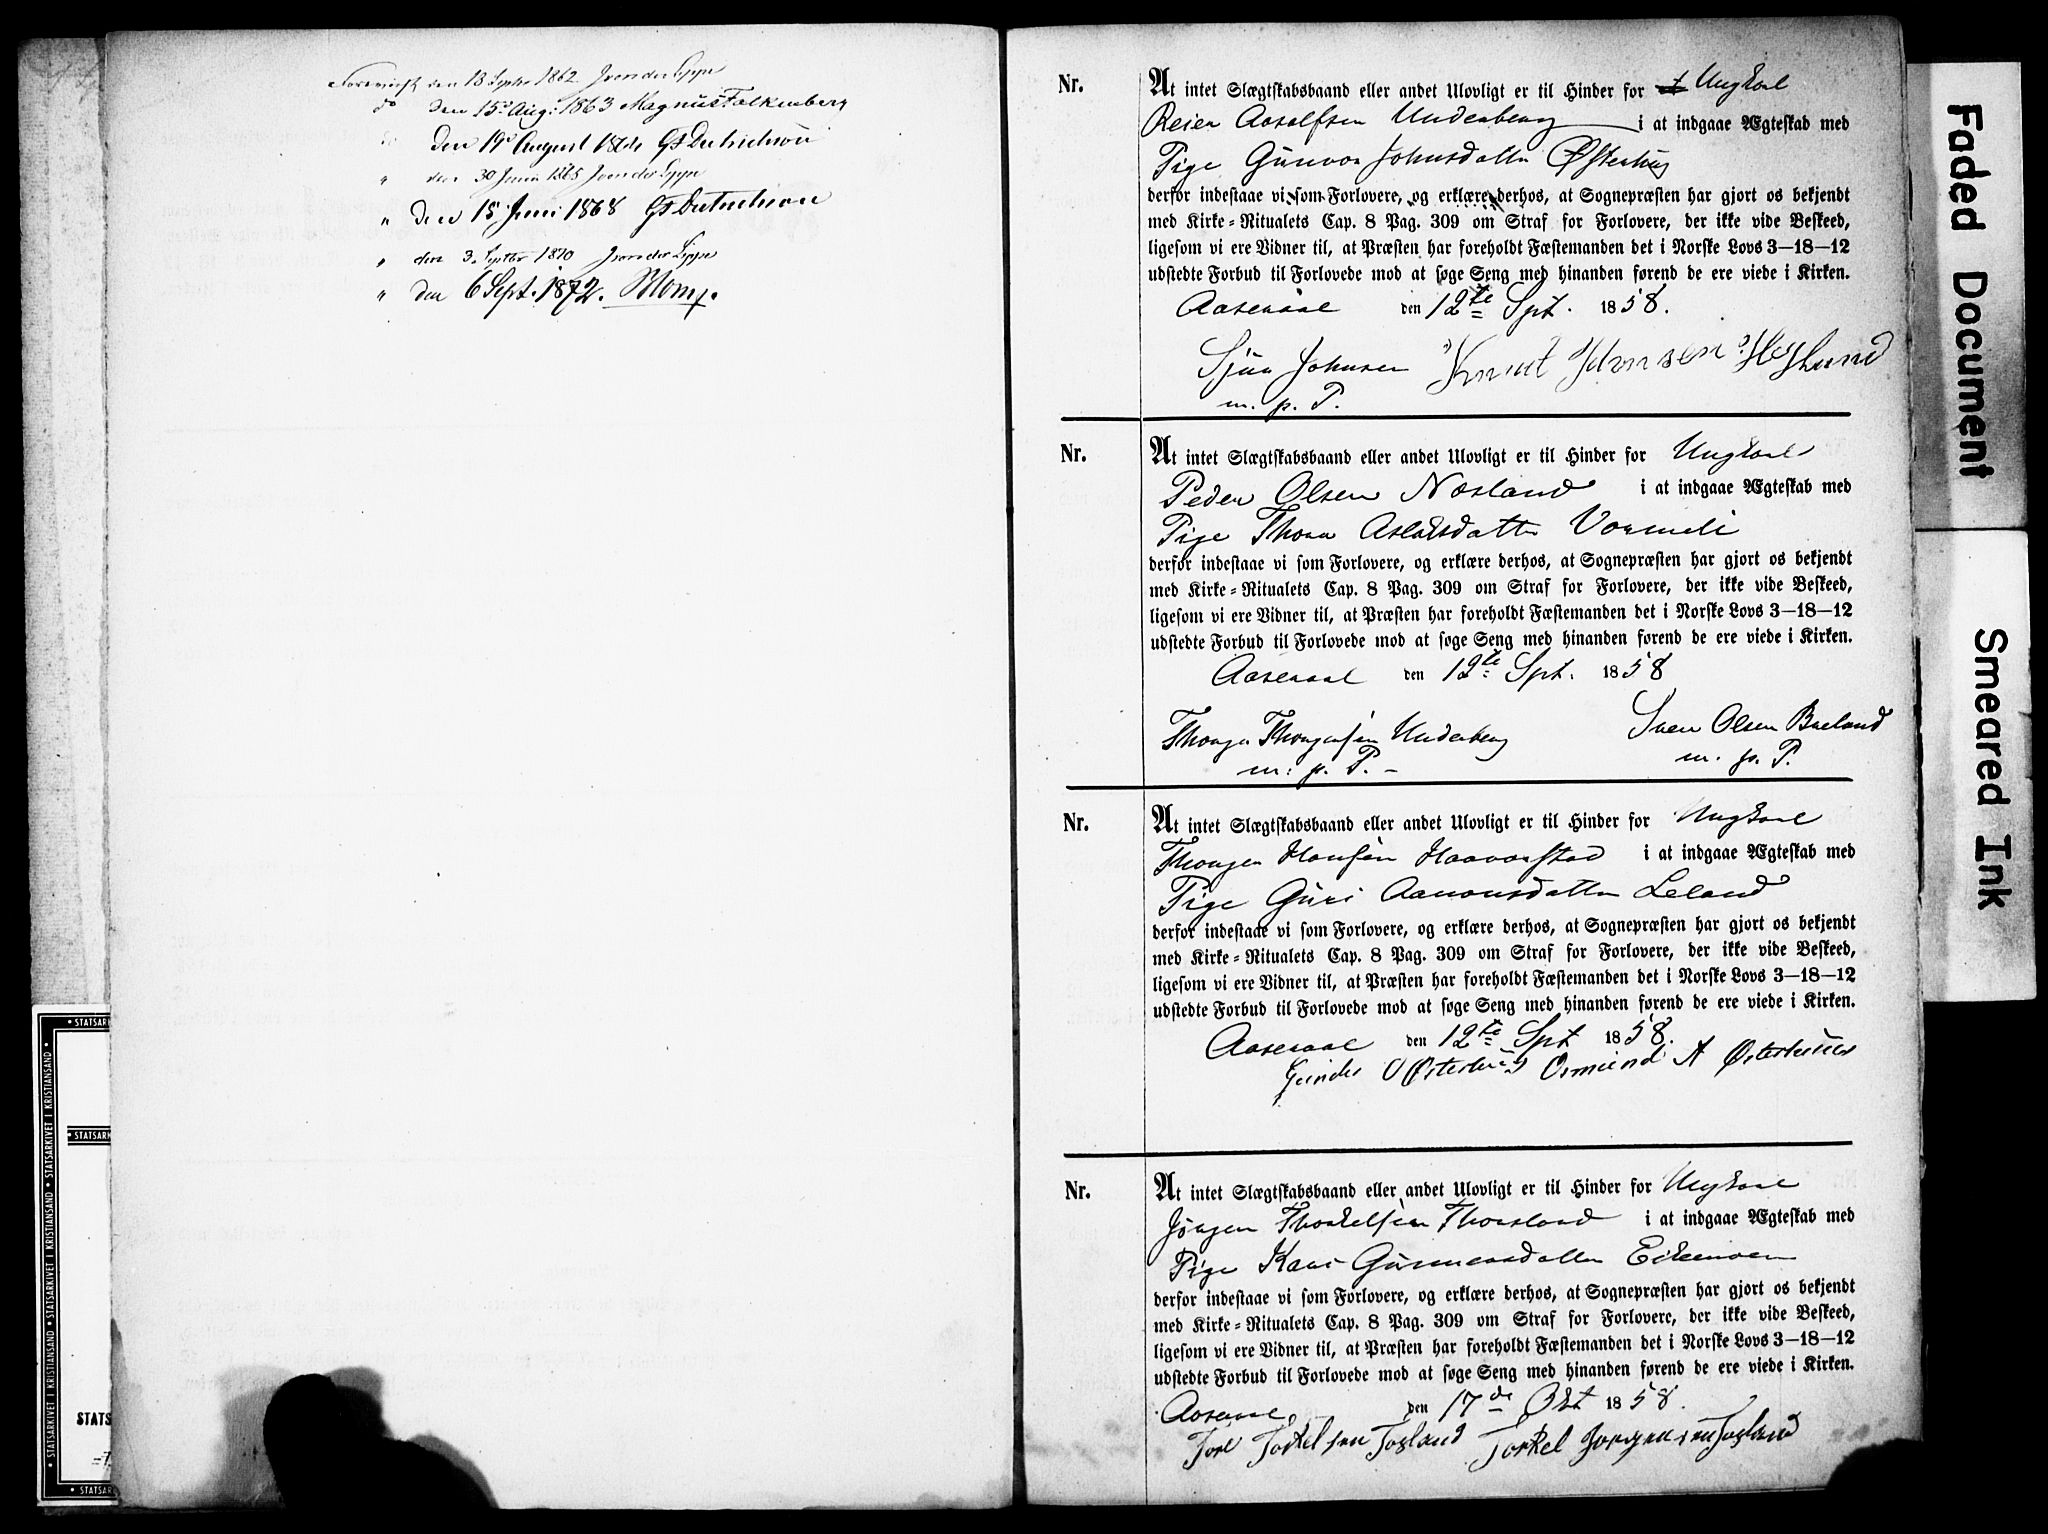 Foreviist den 18 Septr 1862 J von der Lippe
do den 15de Aug: 1863 Magnus Falkenberg
den 19de August G. Dietrichson
" den 30 Juni 1865 J von der Lippe
" den 15 Juni 1868 G. Dietrichson
" den 3. Septbr 1870 J von der Lippe
" den 6 Sept. 1872.
Nr. At intet Slægtskabsbaand eller andet Ulovligt er til Hinder for Ungkarl
Reier Aasulfsen Underberg i at indgaae Ægteskab med
Pige Gunvor Johnsdatter Østerhus
derfor indestaae vi som Forlovere, og erklære derhos, at Sognepræsten har gjort os bekjendt
med Kirke-Ritualets Cap. 8 Pag. 309 om Straf for Forlovere, der ikke vide Beskeed,
ligesom vi ere Vidner til, at Præsten har foreholdt Fæstemanden det i Norske Lovs 3-18-12
udstedte Forbud til Forlovede mod at søge Seng med hinanden førend de ere viede i Kirken.
Aaseraal den 12te Spt. 1858.
Johnsen Knud
m. p. P.
Nr. At intet Slægtskabsbaand eller andet Ulovligt er til Hinder for Ungkarl
Peder Olsen Næsland i at indgaae Ægteskab med
Pige Thora Aslaksdatter Vormeli
derfor indestaae vi som Forlovere, og erklære derhos, at Sognepræsten har gjort os bekjendt
med Kirke-Ritualets Cap. 8 Pag. 309 om Straf for Forlovere, der ikke vide Beskeed,
ligesom vi ere Vidner til, at Præsten har foreholdt Fæstemanden det i Norske Lovs 3-18-12
udstedte Forbud til Forlovede mod at søge Seng med hinanden førend de ere viede i Kirken.
Aaseraal den 12te Spt. 1858
Thorger Thorgersen Underberg Sven Olsen Breland
m. p. P. - m. p. P.
Nr. At intet Slægtskabsbaand eller andet Ulovligt er til Hinder for Ungkarl
Thorger Hansen Haavorstad i at indgaae Ægteskab med
Pige Guri Aanonsdatter Leland
derfor indestaae vi som Forlovere, og erklære derhos, at Sognepræsten har gjort os bekjendt
med Kirke-Ritualets Cap. 8 Pag. 309 om Straf for Forlovere, der ikke vide Beskeed,
ligesom vi ere Vidner til, at Præsten har foreholdt Fæstemanden det i Norske Lovs 3-18-12
udstedte Forbud til Forlovede mod at søge Seng med hinanden førend de ere viede i Kirken.
Aaseraal den 12te Spt 1858.
O Østerhus Ormund A Østerhus
Nr. At intet Slægtskabsbaand eller andet Ulovligt er til Hinder for Ungkarl
Jørgen Thorkelsen Thorsland i at indgaae Ægteskab med
Pige Kari Gunnarsdatter Eikenæs
derfor indestaae vi som Forlovere, og erklære derhos, at Sognepræsten har gjort os bekjendt
med Kirke-Ritualets Cap. 8 Pag. 309 om Straf for Forlovere, der ikke vide Beskeed,
ligesom vi ere Vidner til, at Præsten har foreholdt Fæstemanden det i Norske Lovs 3-18-12
udstedte Forbud til Forlovede mod at søge Seng med hinanden førend de ere viede i Kirken.
Aaseraal den 17de Okt 1858.
Torkelsen Tosland Torkel Jørgensen Tosland
Faded Document
Smeared Ink
STATSARKIVET I KRISTIANSAND